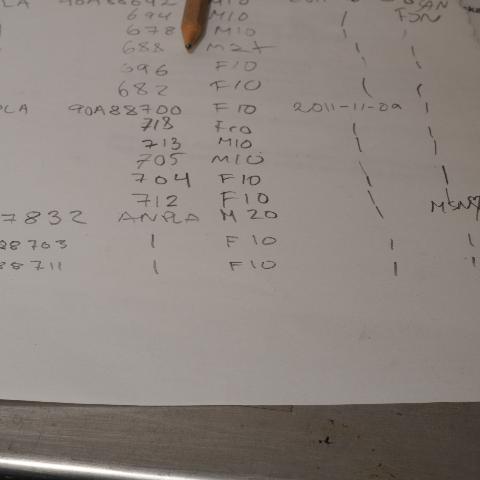 694 M10 | FJN
678 M10 |
688 M2+ |
696 F10 |
682 F10 | |
PLA 90A88700 F10 2011-11-09 |
718 F10 | |
713 M10 | |
705 M10
704 F10 | |
712 F10 |
7832 ANPLA M20 \
28703 | F10 | |
88711 | F10 | |